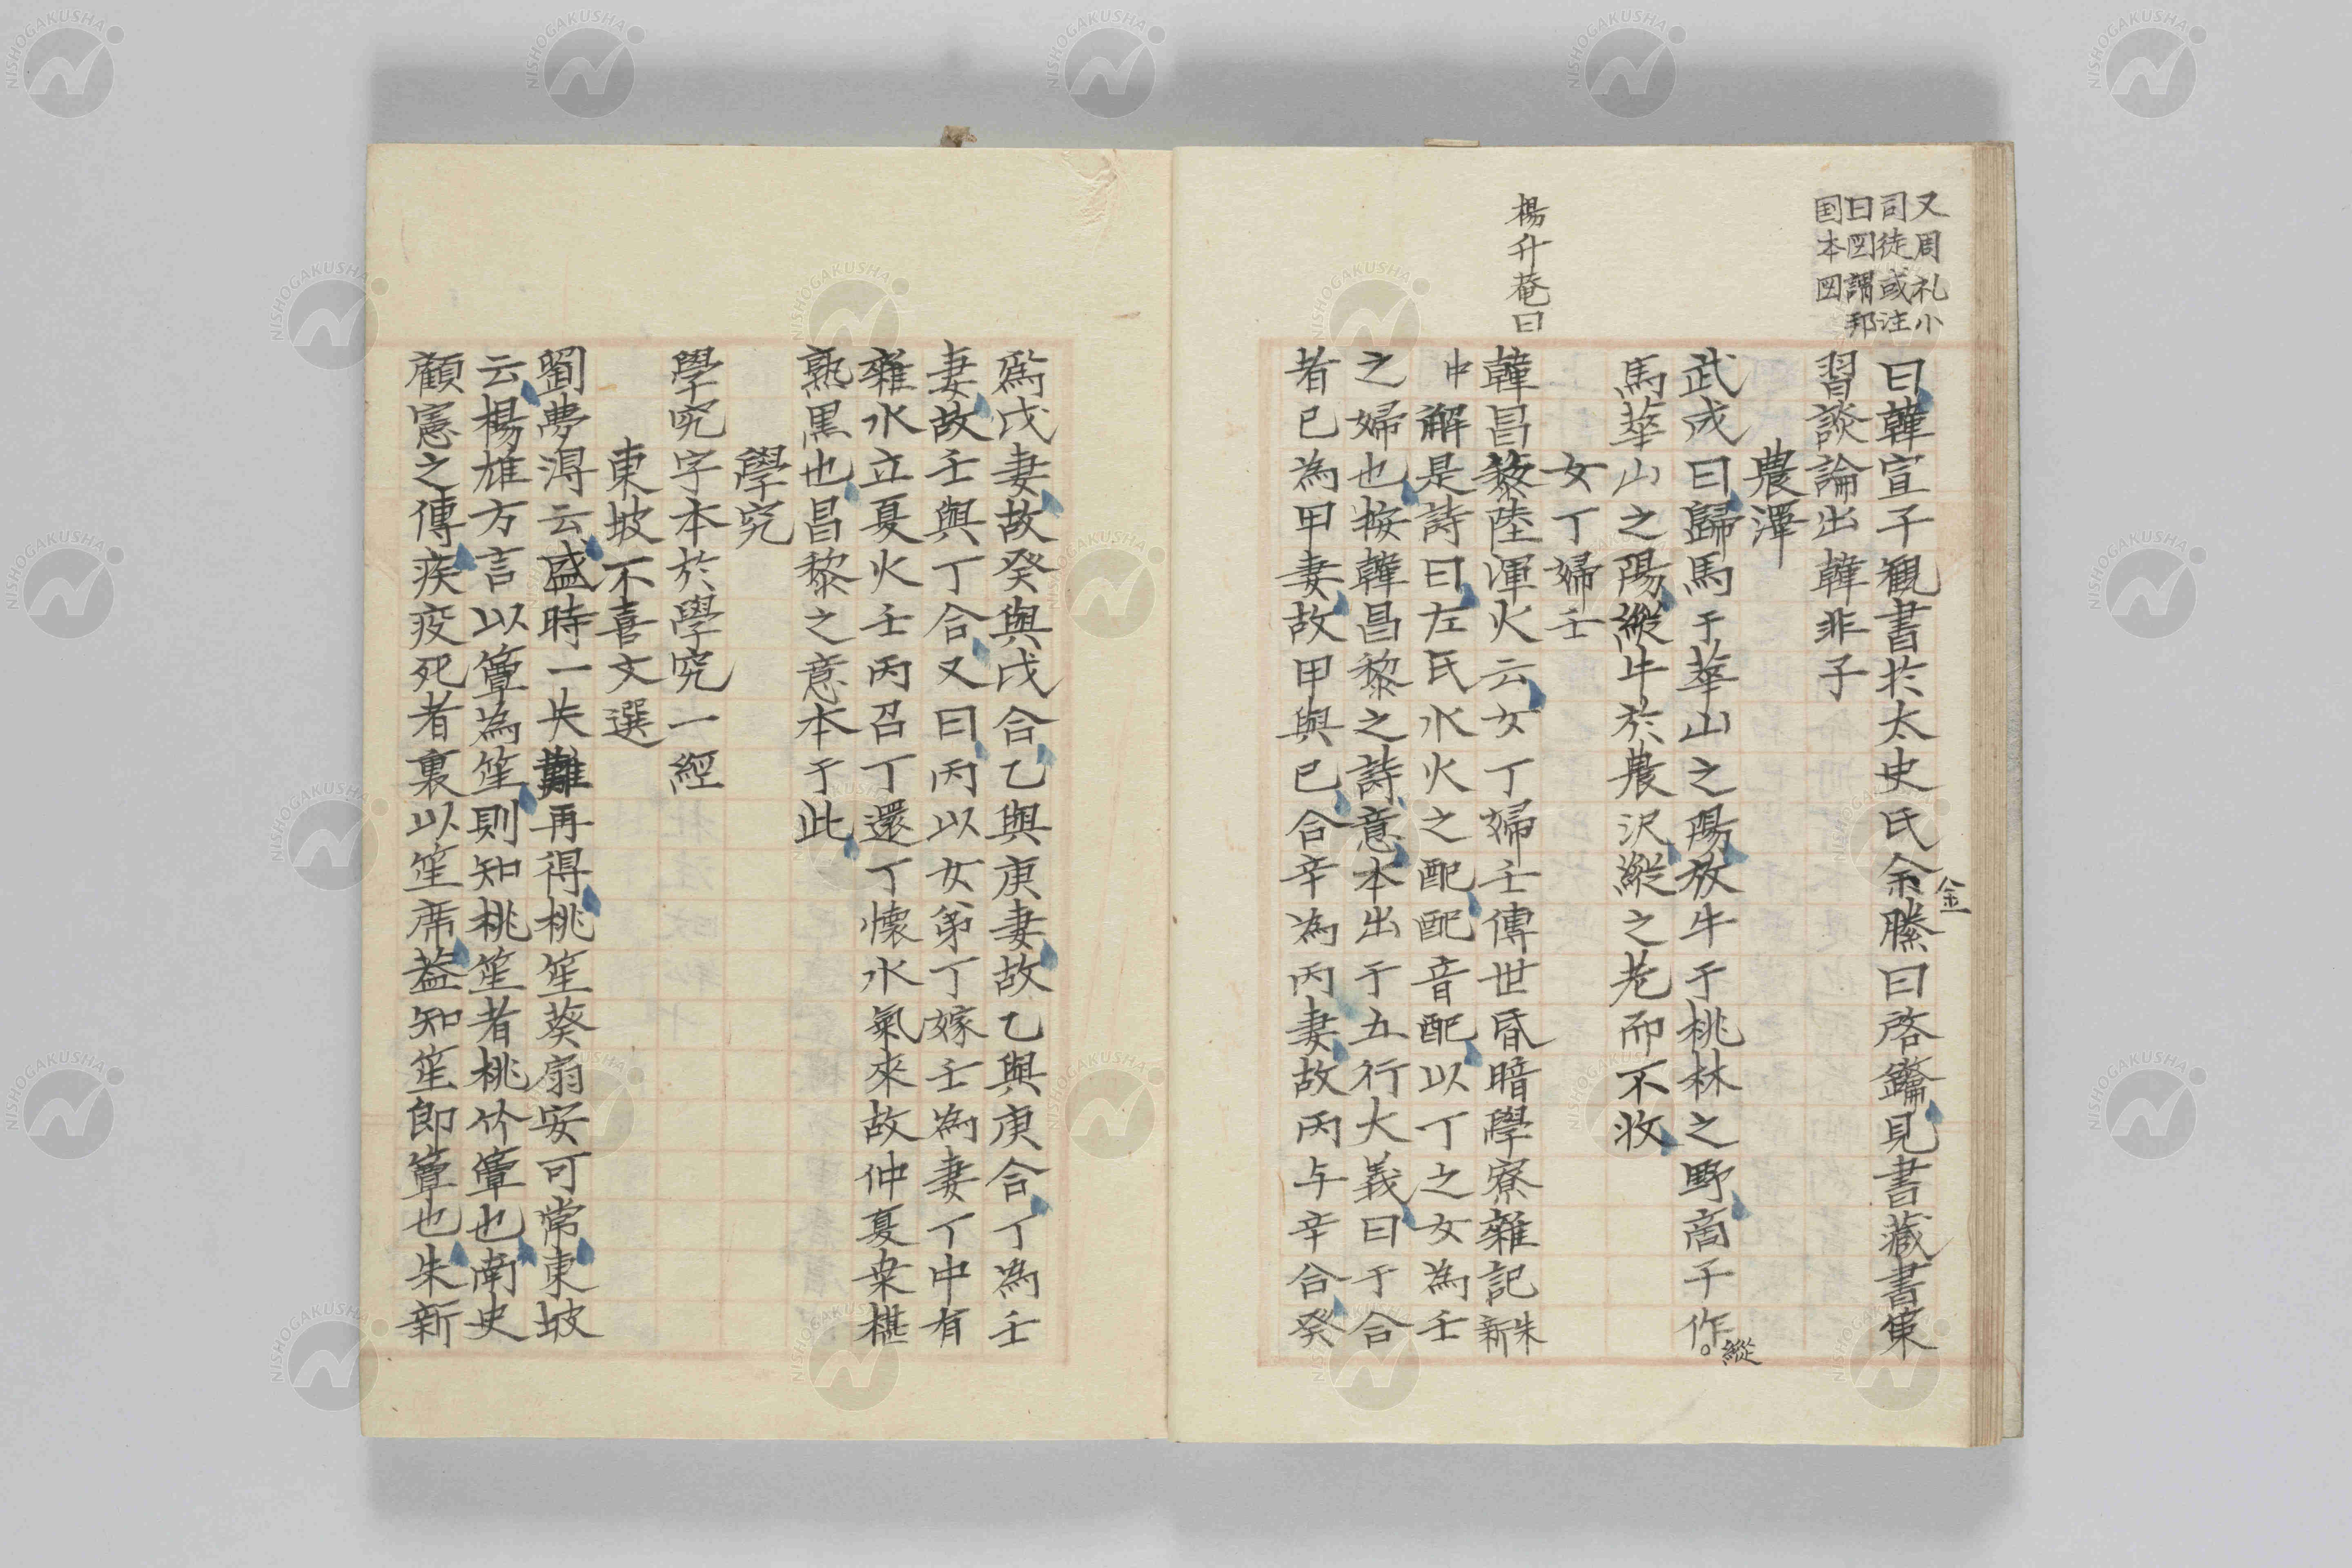 又周礼小
司徒或注
曰図謂邦
国本図
曰韓宣子観書於太史氏余縢曰啓鑰見書藏書策
金
習談論出韓非子
農澤
武成曰歸馬于華山之陽放牛于桃林之野商子作。
縱
馬華山之陽縱牛於農沢縱之老而不收
女丁婦壬
楊升菴曰
韓昌黎陸渾火云女丁婦壬傳世昏暗學寮雜記朱新
中解是詩曰左氏水火之配配音配以丁之女為壬
之婦也按韓昌黎之詩意本出于五行大義曰于合
者已為甲妻故甲與已合辛為丙妻故丙与辛合癸
為戊妻故癸與戊合乙與庚妻故乙與庚合丁為壬
妻故壬與丁合又曰丙以女弟丁嫁壬為妻丁中有
雜水立夏火壬丙召丁還丁懷水氣來故仲夏桒椹
熟黒也昌黎之意本于此
學究
學究字本於學究一經
東坡不喜文選
劉夢淂云盛時一失難再得桃笙葵扇安可常東坡
云楊雄方言以簟為笙則知桃笙者桃竹簟也南史
顧憲之傳疾疫死者裹以笙席益知笙即簟也朱新